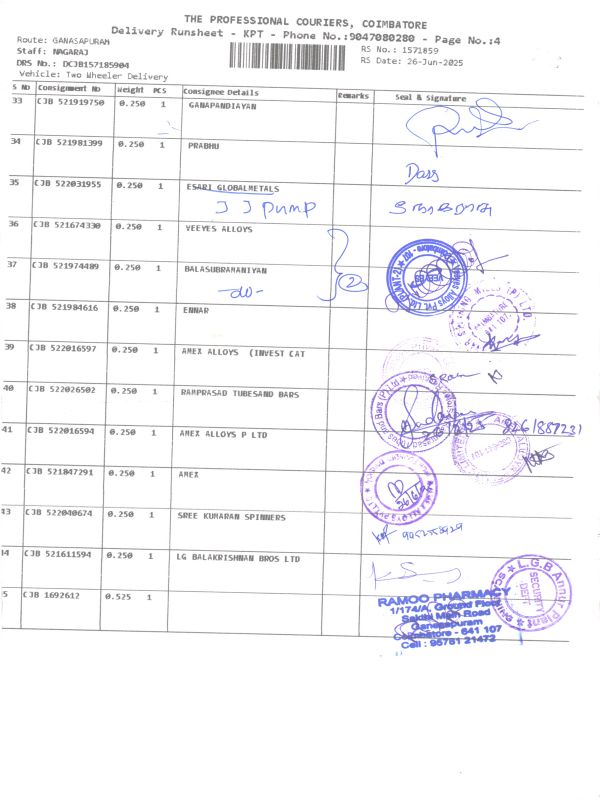 THE PROFESSIONAL COURIERS, COIMBATORE
Delivery Runsheet - KPT - Phone No.:9047080280 - Page No.:4
Route: GANASAPURAM
RS No.: 1571859
Staff: NAGARAJ
RS Date: 26-Jun-2025
DRS No.: DCJB157185904
Vehicle: Two Wheeler Delivery
S No Consignment No Weight PCS Consignee Details Remarks Seal & Signature
33 CJB 521919750 0.250 1 GANAPANDIAYAN
34 CJB 521981399 0.250 1 PRABHU
Dass
35 CJB 522031955 0.250 1 ESARI GLOBALMETALS
J J pump
36 CJB 521674330 0.250 1 VEEYES ALLOYS
37 CJB 521974489 0.250 1 BALASUBRAMANIYAN
-do-
2
38 CJB 521984616 0.250 1 ENNAR
39 CJB 522016597 0.250 1 AMEX ALLOYS (INVEST CAT
40 CJB 522026502 0.250 1 RAMPRASAD TUBESAND BARS
41 CJB 522016594 0.250 1 AMEX ALLOYS P LTD
42 CJB 521847291 0.250 1 AMEX
43 CJB 522040674 0.250 1 SREE KUMARAN SPINNERS
44 CJB 521611594 0.250 1 LG BALAKRISHNAN BROS LTD
L.G.B Annur Plant
SECURITY
DEPT
5 CJB 1692612 0.525 1
RAMOO PHARMACY
1/174/A, Ground Floor
Sakthi Main Road
Ganesapuram
Coimbatore - 641 107
Cell : 95781 21472